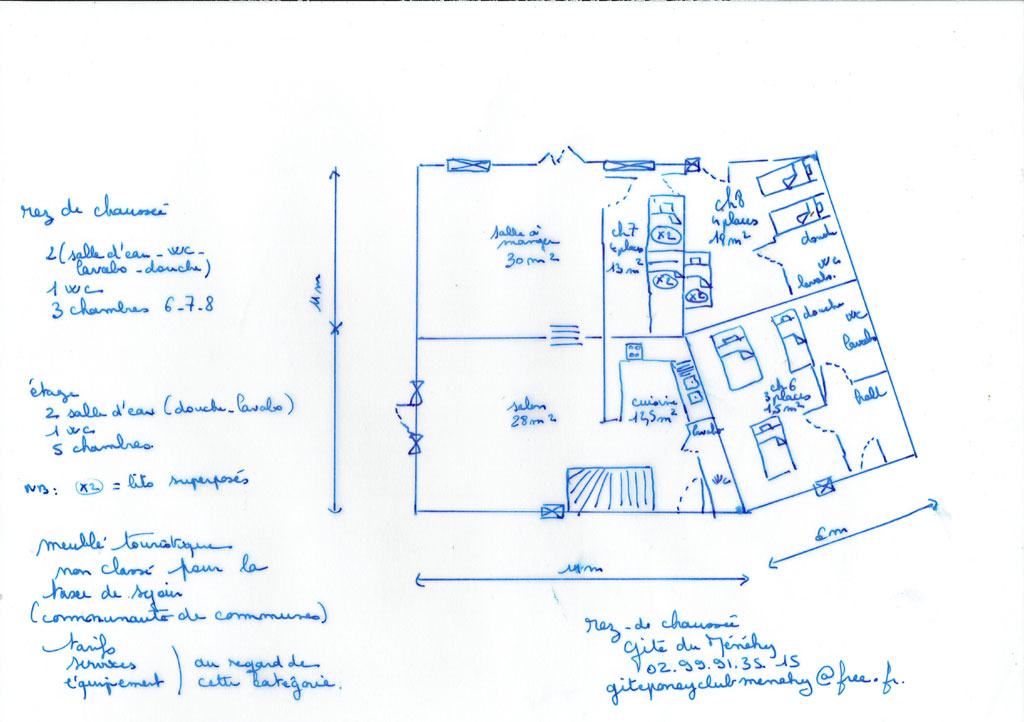 rez de chaussée
2 (salle d'eau - wc -
lavabo - douche)
1 wc
3 chambres 6-7-8
étage
2 salle d'eau (douche - lavabo)
1 wc
5 chambres
NB: x2 = lits superposés
meublé touristique
non classé pour la
taxe de séjour
(communauté de communes)
tarifs
services
équipement
au regard de
cette catégorie.
11 m
salle à
manger
30 m2
ch7
4 places
13 m2
x2
x2
x2
ch8
4 places
18 m2
douche
wc
lavabo.
salon
28 m2
cuisine
12,5 m2
lavabo
wc
ch6
3 places
douche
wc
lavabo
hall
6 m
rez-de chaussée
gîte du Ménéhy
02.99.91.35.15
giteponeyclubmenehy@free.fr.